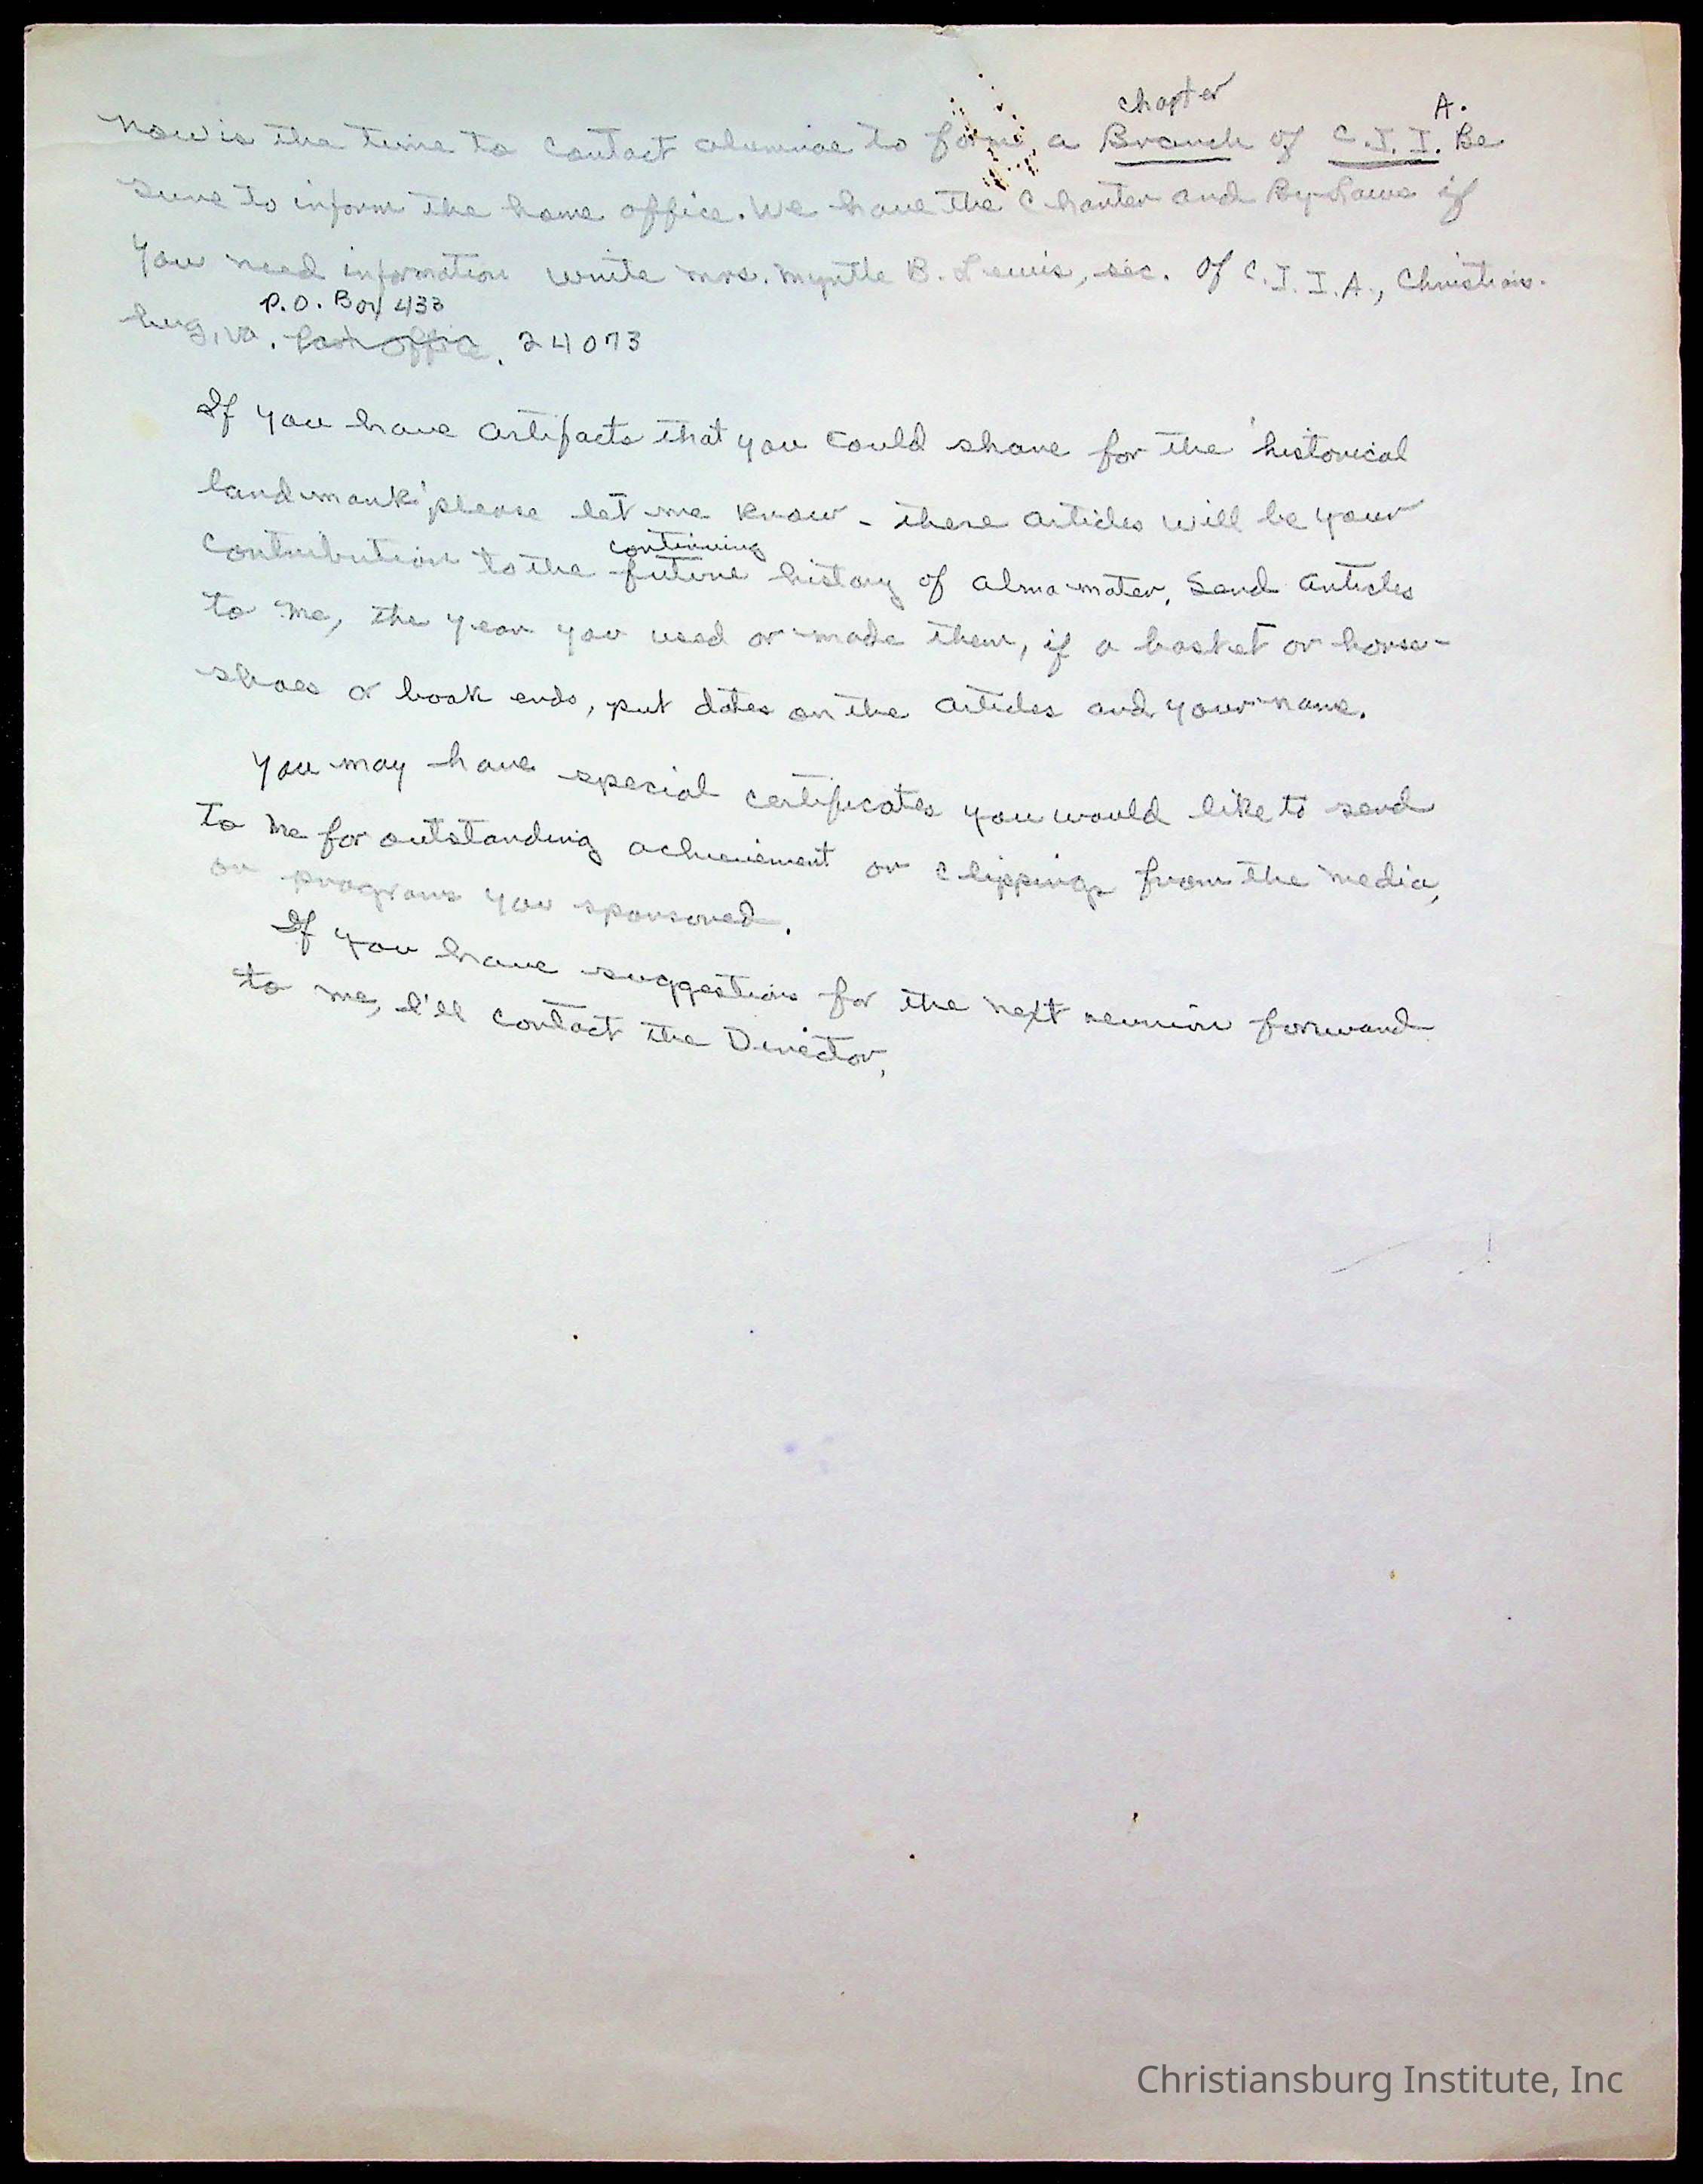 chapter A.
Now is the time to contact alumnae to form a Branch of C.I.I. Be
sure to inform the home office. We have the Charter and By-Laws if
you need information write Mrs. Myrtle B. Lewis, sec. of C.I.I.A., Christians-
P.O. Box 433
burg, Va. Post Office, 24073
If you have artifacts that you could share for the 'historical
landmark' please let me know - these articles will be your
continuing
contribution to the future history of alma mater. Send articles
to me, the year you used or made them, if a basket or horse-
shoes or book ends, put dates on the articles and your name.
You may have special certificates you would like to send
to me for outstanding achievement or clippings from the media,
or programs you sponsored.
If you have suggestions for the next reunion forward
to me, I'll contact the Director.
Christiansburg Institute, Inc